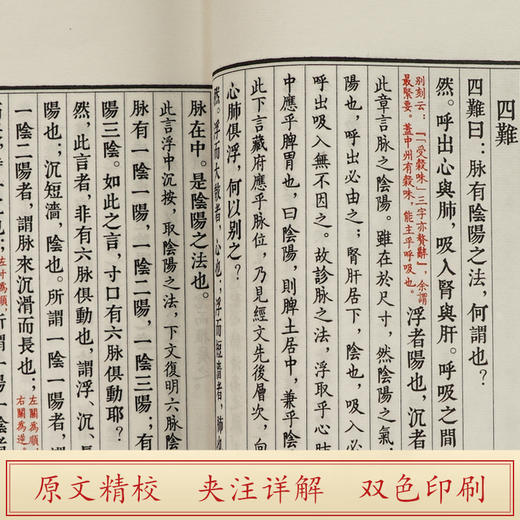 四難
四難曰：脉有陰陽之法，何謂也？
然。呼出心與肺，吸入腎與肝。呼吸之間
別刻云：「『受穀味』三字亦贅辭」，余謂
最緊要。蓋中州有穀味，能主乎呼吸也。
浮者陽也，沉者
此章言脉之陰陽。雖在於尺寸，然陰陽之氣
陽也，必由之；腎肝居下，陰也，吸必
呼出吸入無不因之。故診脉之法，浮取乎心
中應乎脾胃也，曰陰陽，則脾土居中，兼乎陰
此下言藏府應乎脉位，乃見經文先後層次，向
心肺俱浮，何以別之？
然。浮而大散者，心也；浮而短濇者，肺也
脉在中。是陰陽之法也。
此言浮中沉按，取陰陽之法，下文復明六脉陰
脉有一陰一陽，一陰二陽，一陰三陽；有
陽三陰。如此之言，寸口有六脉俱動耶？
然，此言者，非有六脉俱動也，謂浮、沉、長
陽也；沉短濇，陰也。所謂一陰一陽者，
一陰二陽者，謂脉來沉滑而長也；
左關為順
右關為逆。
左寸為順
所謂一陽一陰
原文精校 夹注详解 双色印刷